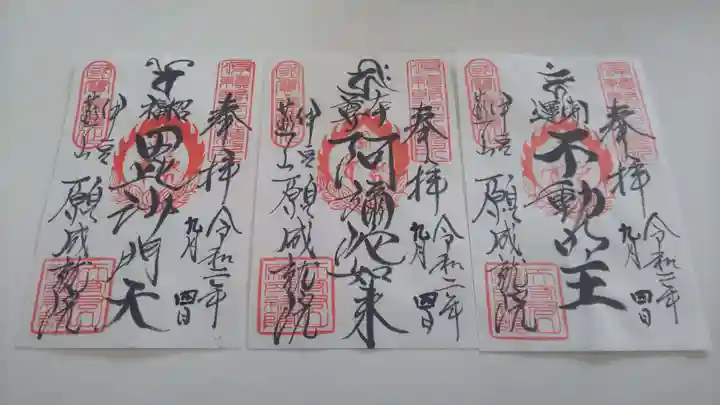 奉拝
令和二年
九月
四日
開運
不動明王
伊豆
韮山
願成就院
奉拝
令和二年
九月
四日
本尊
阿彌陀如来
伊豆
韮山
願成就院
奉拝
令和二年
九月
四日
招福
毘沙門天
伊豆
韮山
願成就院